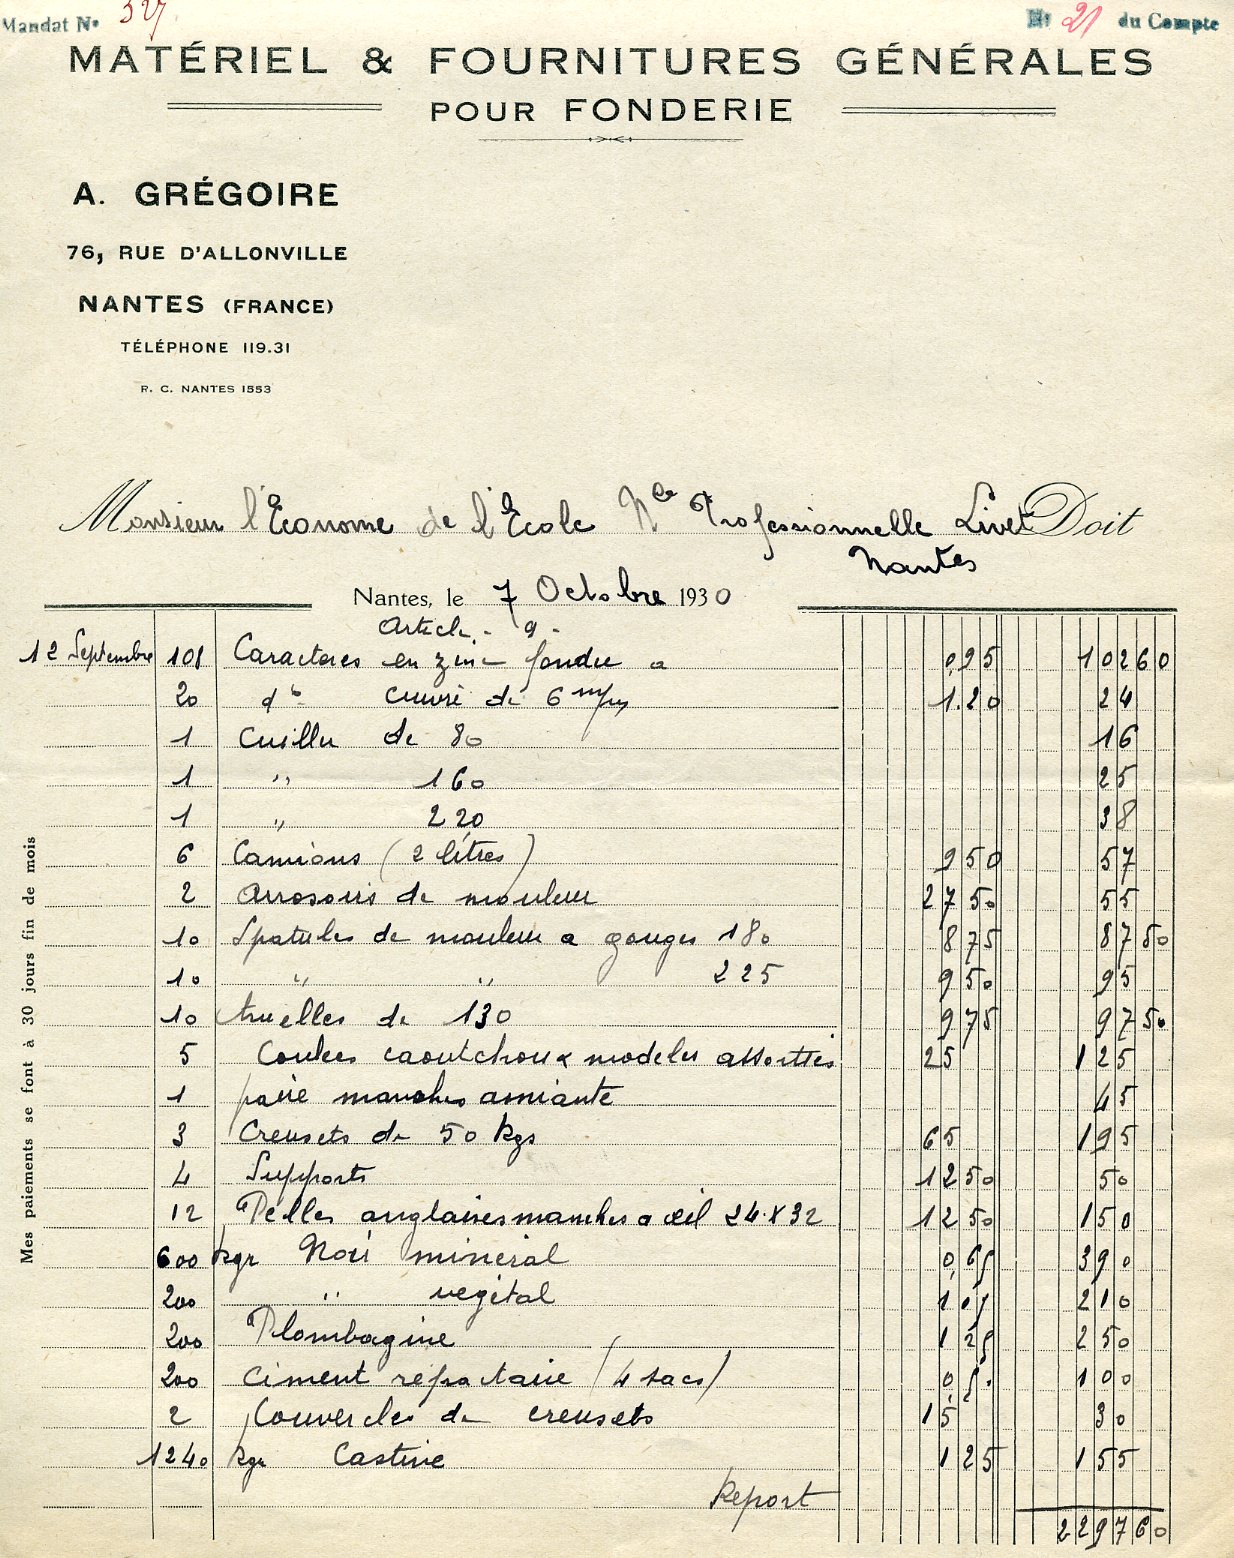 Mandat N° 327
N° 21 du Compte
MATÉRIEL & FOURNITURES GÉNÉRALES
POUR FONDERIE
A. GRÉGOIRE
76, RUE D'ALLONVILLE
NANTES (FRANCE)
TÉLÉPHONE 119.31
R. C. NANTES 1553
Monsieur l'Econome de l'Ecole Nle Professionnelle Livet Doit
Nantes
Nantes, le 7 Octobre 1930
Article 9
12 Septembre 108 Caractères en zinc fondu a 0,95 102 60
20 do cuivre de 6 m/m 1.20 24
1 Cuiller de 80 16
1 " 160 25
1 " 220 38
6 Camions (2 litres) 9 50 57
2 Arrosoirs de mouleur 27 50 55
10 Spatules de mouleur a gouges 180 8 75 87 50
10 " " 225 9 50 95
10 truelles de 130 9 75 97 50
5 caoutchoux modeles assorties 25 125
1 paire manches amiante 45
3 Creusets de 50 kgs 65 195
4 Supports 12 50 50
12 Pelles anglaises manches a œil 24 x 32 12 50 150
600 kgr Noir minéral 0,65 390
200 " végétal 1 05 210
200 Plombagine 1 25 250
200 Ciment réfractaire (4 sacs) 0,5. 100
2 Couvercles de creusets 15 30
1240 kgr Castine 125 155
Report
2297 60
Mes paiements se font à 30 jours fin de mois